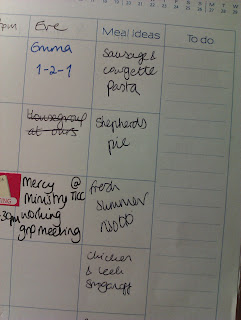 Eve
Meal ideas
To do
Emma
1-2-1
Sausage &
courgette
pasta
Housegroup
at ours
Shepherds
pie
Mercy @
Ministry TICC
working
grp meeting
fresh
summer
risotto
Chicken
& leek
Stroganoff